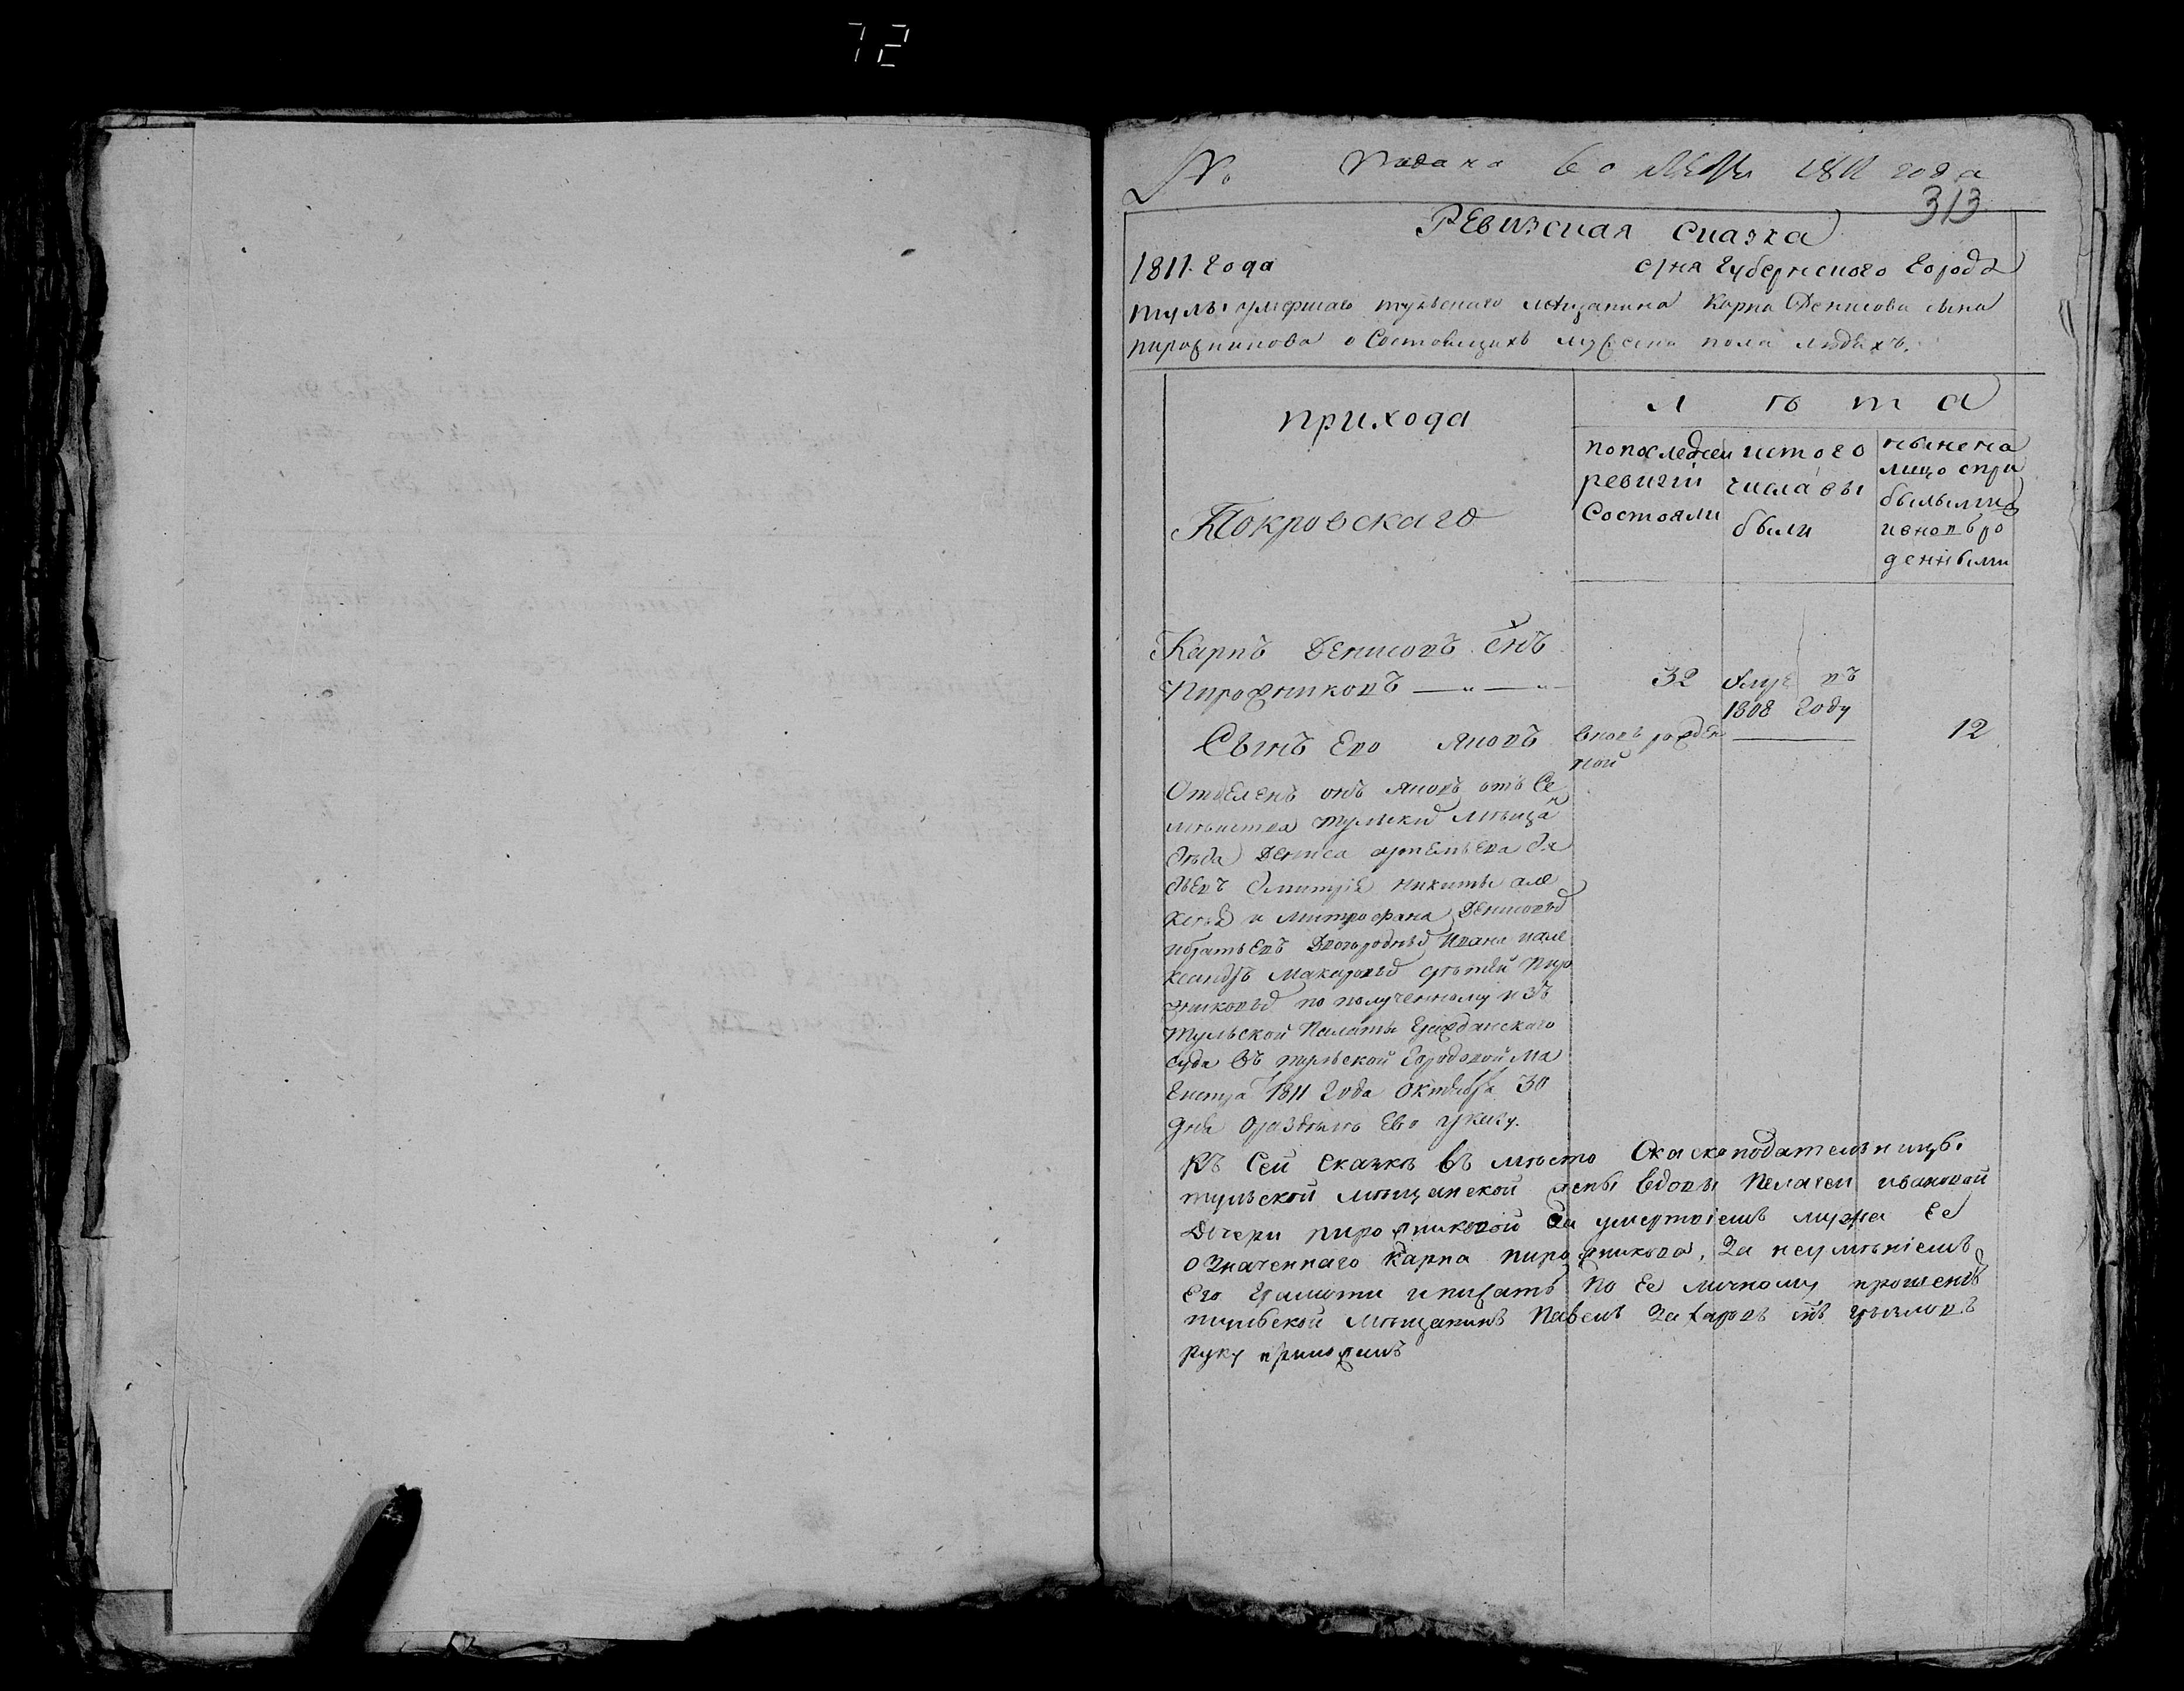 72
№ Подана 1811 года
313
Ревизская Сказка
1811. Года дня Губернского Города
Тулы умершаго тульскаго мещанина Карпа Денисова сына
пирожникова о Состоящихъ мужеска пола людехъ.
прихода
Покровскаго
Л ѣ т а
попоследней ревизіи Состояли
истого числа выбыли
ныне на лицо спри былыми и вновь ро денными
Карпъ Денисовъ снъ
Пирожниковъ
32 въ
1808 Году
Сынъ Его Яковъ вновь рожден
ной
12
Отделенъ онъ Яковъ отъ Се
мѣйства тульских мѣща
дѣда Дениса артемьева дя
дьевъ Дмитрія никиты але
ксѣя и митрофана Денисовых
ибратьевъ Двогородных Ивана иале
ксандръ Макаровых детей Пиро
жниковых по полученному изъ
тульской Палаты Гражданскаго
суда въ тульской Городовой Ма
гистра 1811 Года Октября 30
дня оразделѣ Его указу.
Къ Сей сказкѣ въ мѣсто Скаскоподательницы
тульской мѣщанской жены вдовы Пелагеи ивановой
Дочери пирожниковой За умертвіемъ мужа Ее
означеннаго Карпа пирожникова, За неумѣніемъ
Его Грамоти иписать По Ее личному прошенію
тульской мѣщанинъ Павелъ Захаровъ снъ
руку приложилъ